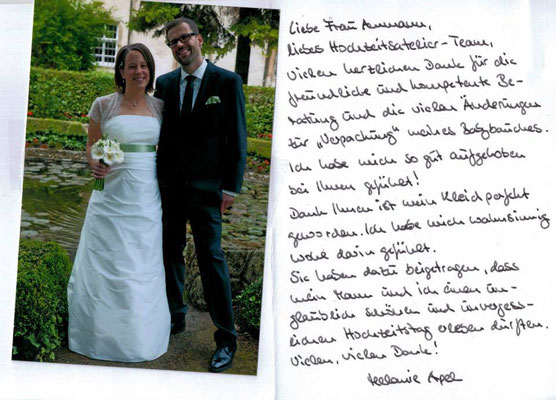 Liebe Frau Ammann,
liebes Hochzeitsatelier-Team,
vielen herzlichen Dank für die
freundliche und kompetente Be-
ratung und die vielen Änderungen
für „Verpackung" meines Babybauches.
Ich habe mich so gut aufgehoben
bei Ihnen gefühlt!
Dank Ihnen ist mein Kleid perfekt
geworden. Ich habe mich wahnsinnig
wohl darin gefühlt.
Sie haben dazu beigetragen, dass
mein Mann und ich einen un-
glaublich schönen und unvergess-
lichen Hochzeitstag erleben durften.
Vielen, vielen Dank!
Melanie Apel